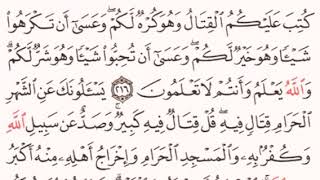 كُتِبَ عَلَيْكُمُ ٱلْقِتَالُ وَهُوَ كُرْهٌ لَّكُمْ ۖ وَعَسَىٰٓ أَن تَكْرَهُوا۟
شَيْـًٔا وَهُوَ خَيْرٌ لَّكُمْ ۖ وَعَسَىٰٓ أَن تُحِبُّوا۟ شَيْـًٔا وَهُوَ شَرٌّ لَّكُمْ ۗ
وَٱللَّهُ يَعْلَمُ وَأَنتُمْ لَا تَعْلَمُونَ ٢١٦ يَسْـَٔلُونَكَ عَنِ ٱلشَّهْرِ
ٱلْحَرَامِ قِتَالٍ فِيهِ ۖ قُلْ قِتَالٌ فِيهِ كَبِيرٌ ۖ وَصَدٌّ عَن سَبِيلِ ٱللَّهِ
وَكُفْرٌۢ بِهِۦ وَٱلْمَسْجِدِ ٱلْحَرَامِ وَإِخْرَاجُ أَهْلِهِۦ مِنْهُ أَكْبَرُ